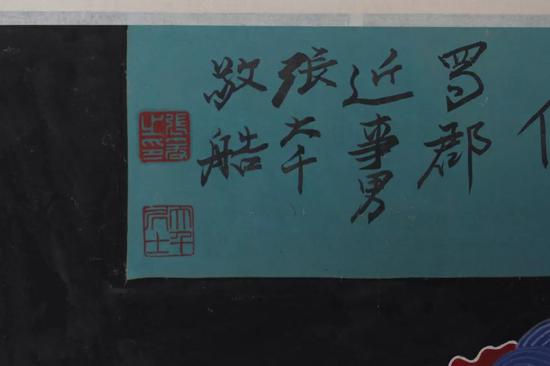 蜀郡
近事男
張大千
敬艁
張爰之印
大千居士